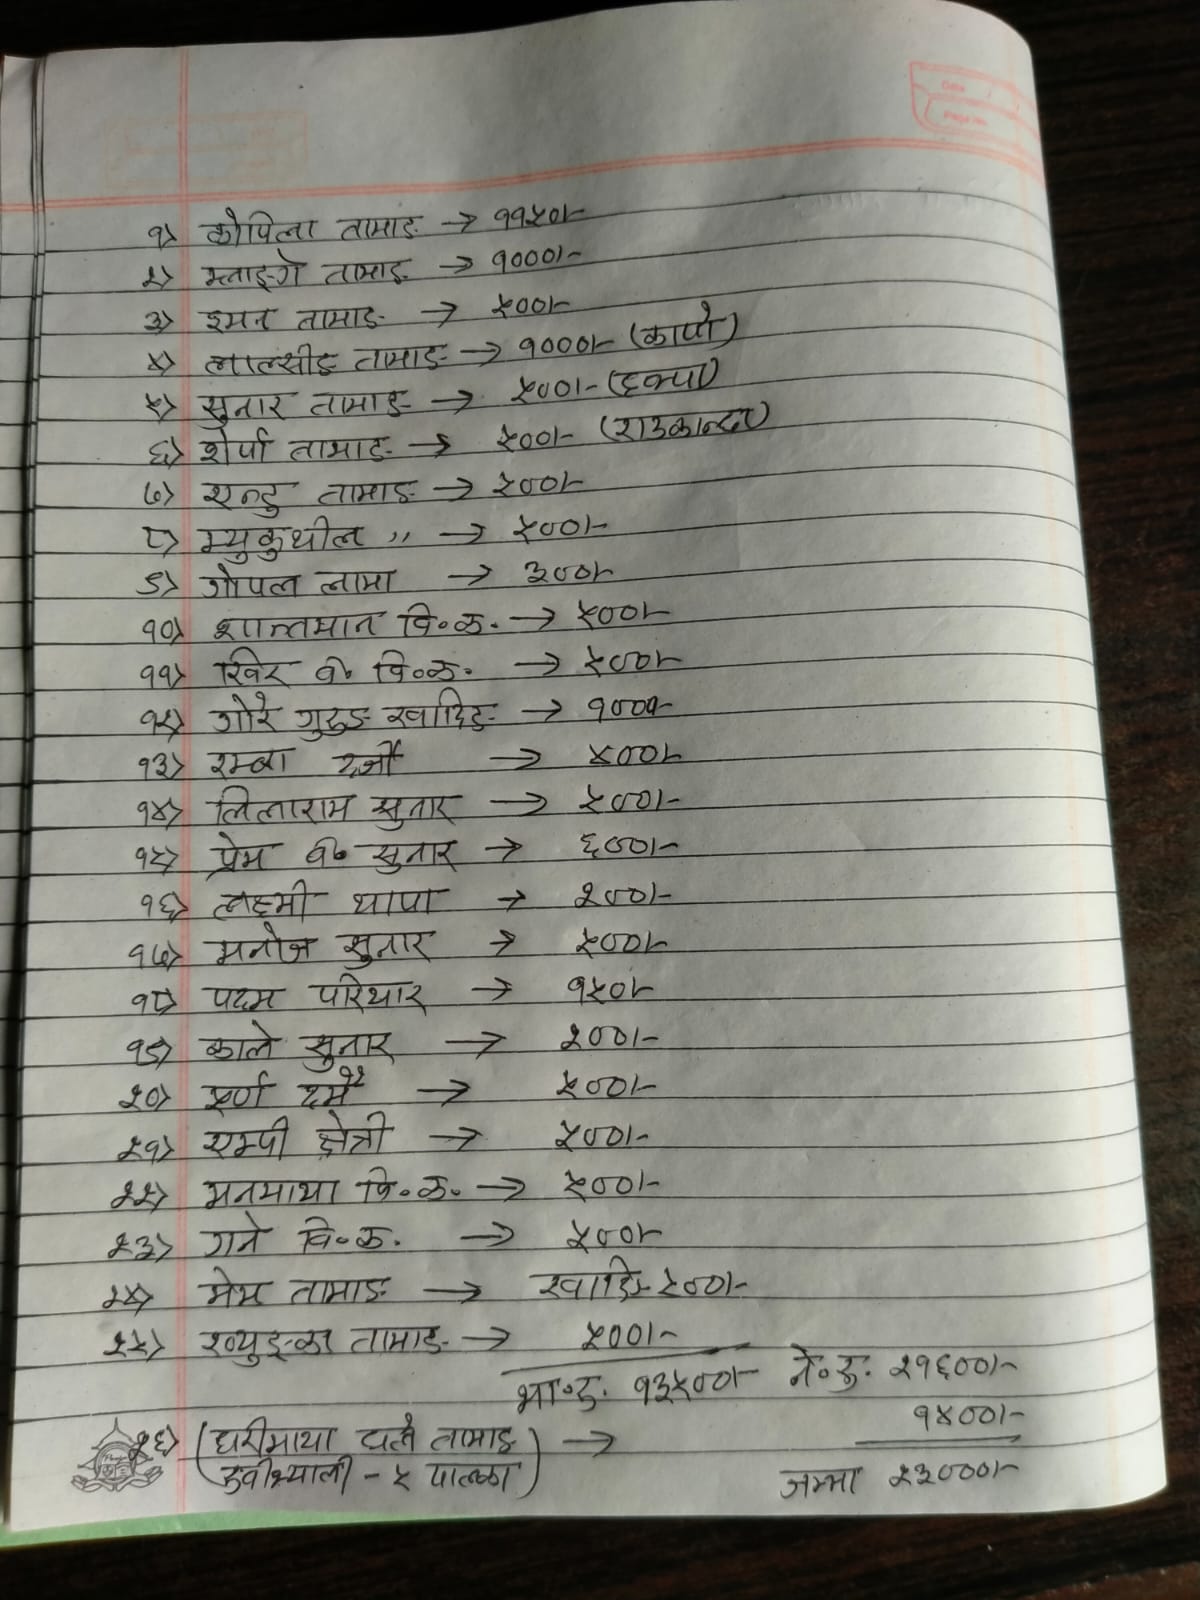 १) कोपिला तामाङ → ११५०।-
२) म्लाङ्गे तामाङ → १०००।-
३) इमन तामाङ → ५००।-
४) लाल्सीङ तामाङ → १०००।- (काप्रो)
५) सुनार तामाङ → ५००।-
६) शेर्पा तामाङ → ५००।- (राउकान्दा)
७) शन्टु तामाङ → ५००।-
८) म्युकुथील ,, → ५००।-
९) गोपल लामा → ३००।-
१०) शान्तमान वि॰क. → ५००।-
११) खिर ब॰ वि॰क. → ५००।-
१२) गोरे गुरुङ खादिङ → १०००।-
१३) रम्बा दर्जी → ४००।-
१४) लिलाराम सुनार → ५००।-
१५) प्रेम ब॰ सुनार → ६००।-
१६) लक्ष्मी थापा → २००।-
१७) मनोज सुनार → ५००।-
१८) पदम परियार → १५०।-
१९) काले सुनार → २००।-
२०) पूर्ण दमै → ५००।-
२१) एम्पी क्षेत्री → ५००।-
२२) मनमाया वि.क. → ५००।-
२३) गने वि॰क. → ५००।-
२४) मेम तामाङ → खादिङ ५००।-
२५) तामाङ → ५००।-
भा॰रु. १३५००।- ने॰रु. २१६००।-
१४००।-
२६) (घरीमाया तामाङ →
- ५ पाल्का)
जम्मा २३०००।-